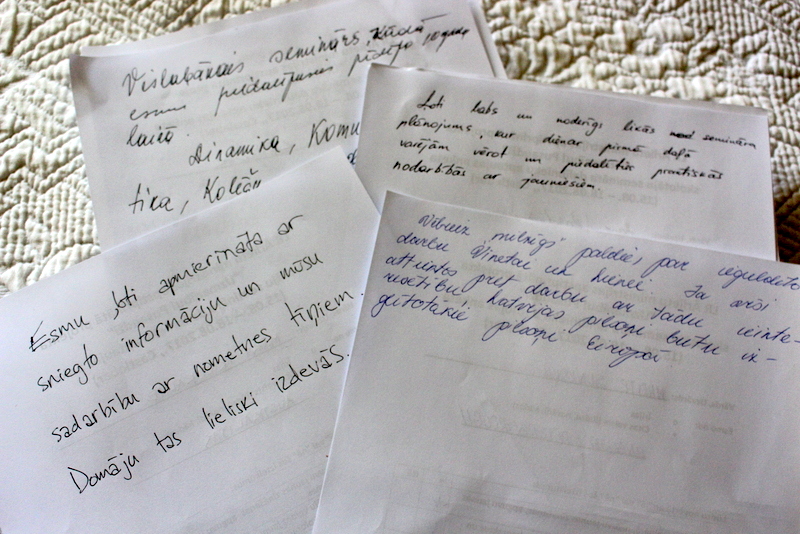 Vislabākais seminārs kādā
esmu piedalījusies pēdējo 10 gadu
laikā.
Dinamika, Komu
tika, Kolēģ
Ļoti labs un noderīgs likās semināra
plānojums, kur dienar pirmā daļā
varējām vērot un piedalīties praktiskās
nodarbībās ar jauniešiem.
Esmu ļoti apmierināta ar
sniegto informāciju un mūsu
sadarbību ar nometnes tīņiem.
Domāju tas lieliski izdevās.
Visuiz milzīgs paldies par ieguldīto
darbu Vinetai un Lienei. Ja arsi
attiektos pret darbu ar tādu ieinte-
resētību Latvijas pilsoņi būtu iz-
glītotākie pilsoņi Eiropā.